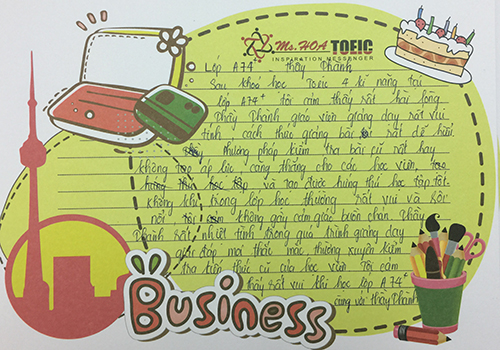 Ms. HOA TOEIC
INSPIRATION MESSENGER
Lớp A74+ thầy Thành
Sau khoá học Toeic 4 kĩ năng tại
lớp A74+ tôi cảm thấy rất hài lòng
Thầy Thành giáo viên giảng dạy rất vui
tính cách thức giảng bài rất dễ hiểu
phương pháp kiểm tra bài cũ rất hay
không tạo áp lực căng thẳng cho các học viên, tạo
hứng thú học tập và tạo được hứng thú học tập tốt.
Không khí trong lớp học thường rất vui và sôi
nổi không gây cảm giác buồn chán. Thầy
Thành rất nhiệt tình trong quá trình giảng dạy
giải đáp mọi thắc mắc thường xuyên kiểm
tra kiến thức cũ của học viên. Tôi cảm
thấy rất vui khi học lớp A74+
cùng với thầy Thành
Business